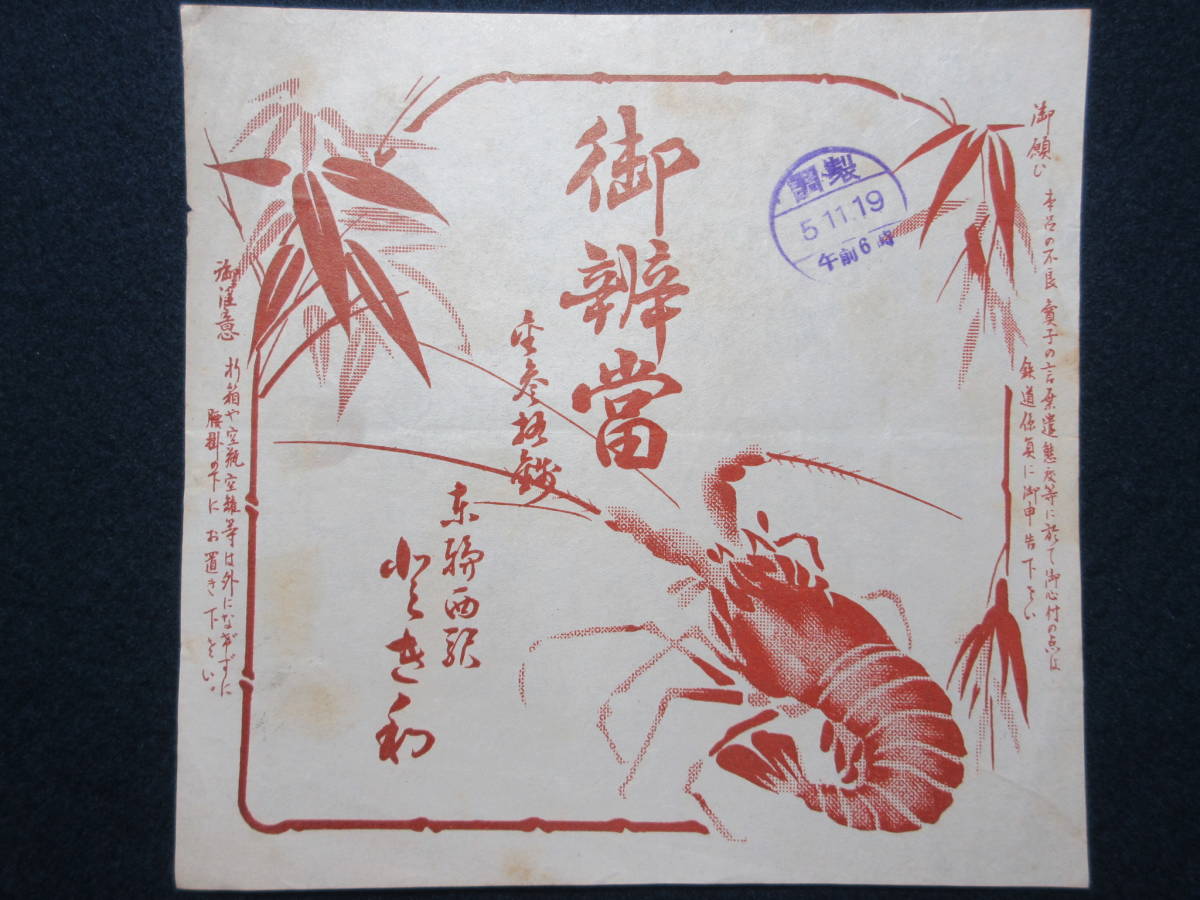 御願ひ 本品の不良 賣子の言葉遣態度等に於て御心付の点は
鉄道係員に御申告下さい
調製
5.11.19
午前6時
御辨當
金参拾錢
西駅
御注意 折箱や空瓶空雑等は外になげずに
腰掛の下にお置き下さい。